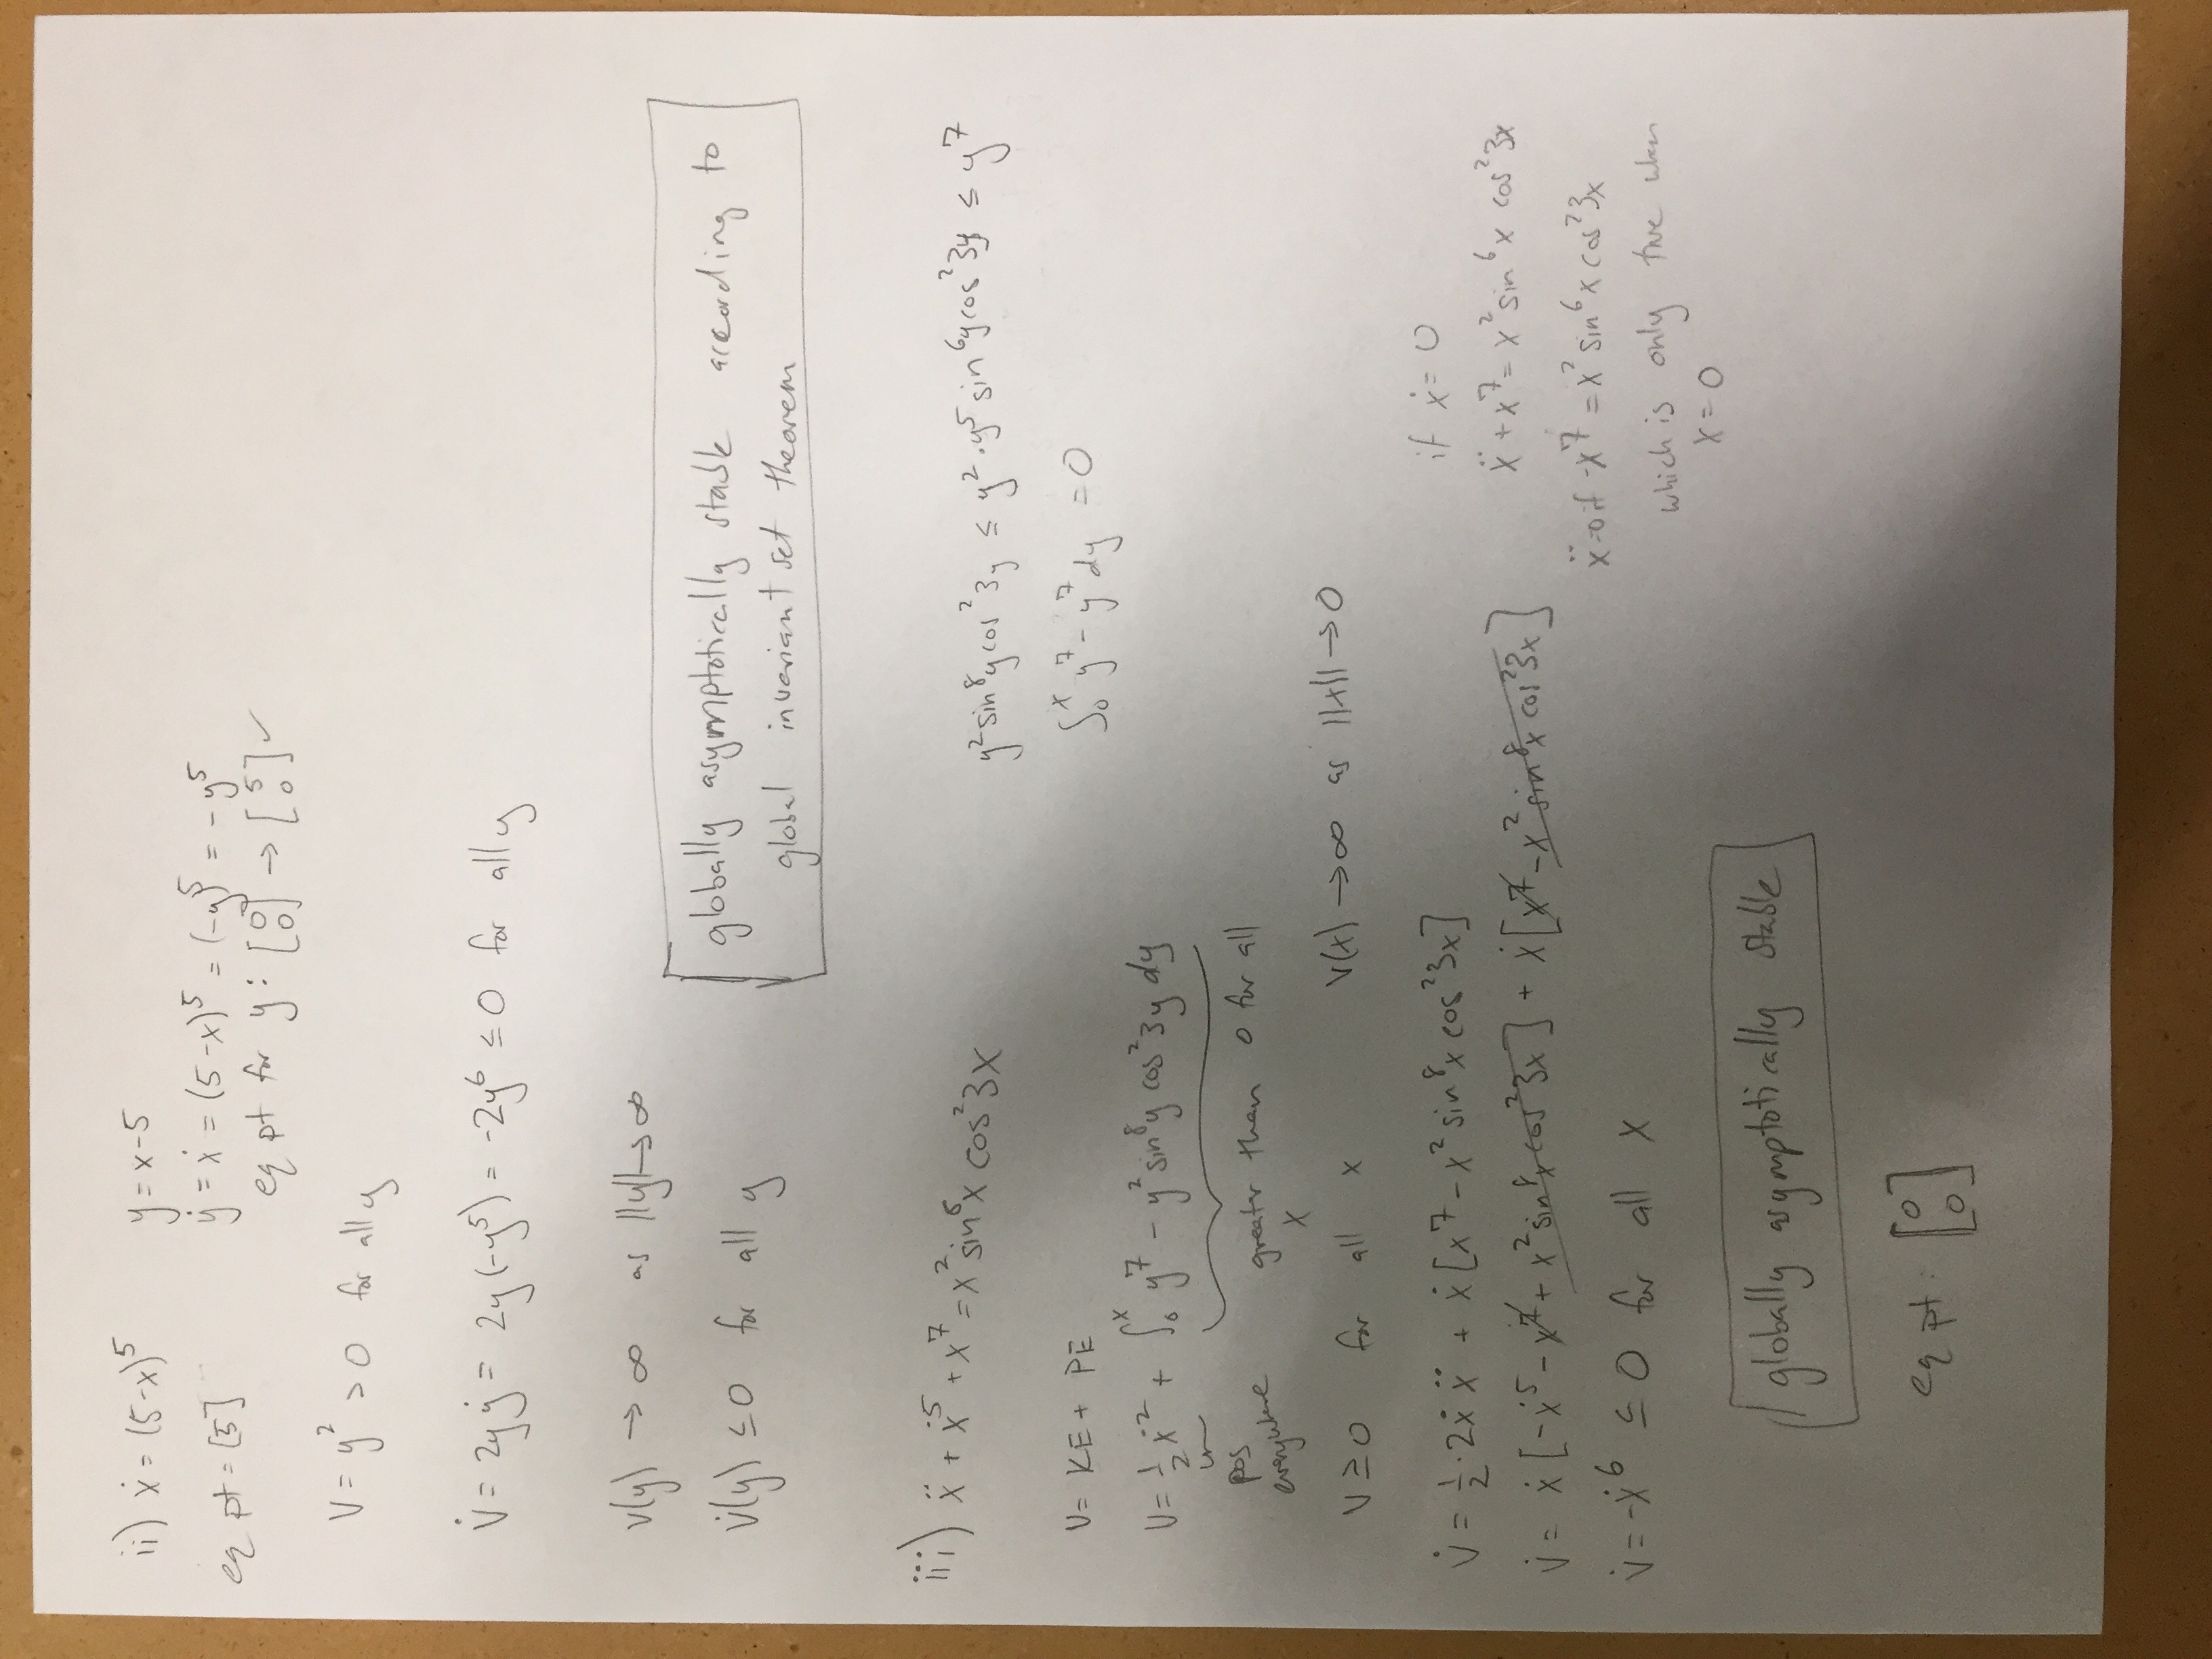 ii) ẋ = (5-x)⁵ y = x-5
eq pt = [5] ẏ = ẋ = (5-x)⁵ = (-y)⁵ = -y⁵
eq pt for y: [0 0] → [5 0] ✓
V = y² > 0 for all y
V̇ = 2yẏ = 2y(-y⁵) = -2y⁶ ≤ 0 for all y
V(y) → ∞ as ||y|| → ∞
V̇(y) ≤ 0 for all y
globally asymptotically stable according to
global invariant set theorem
iii) ẍ + ẋ⁵ + x⁷ = x² sin⁸x cos²3x
y² sin⁸y cos²3y ≤ y²·y⁵ sin⁶y cos²3y ≤ y⁷
∫₀ˣ y⁷ - y⁷ dy = 0
V = KE + PE
V = ½ẋ² + ∫₀ˣ y⁷ - y² sin⁸y cos²3y dy
pos
everywhere
greater than 0 for all
x
V ≥ 0 for all x V(x) → ∞ as ||x|| → 0
V̇ = ½·2ẋẍ + ẋ[x⁷ - x² sin⁸x cos²3x]
V̇ = ẋ[-ẋ⁵ - x⁷ + x² sin⁸x cos²3x] + ẋ[x⁷ - x² sin⁸x cos²3x]
V̇ = -ẋ⁶ ≤ 0 for all x
if ẋ = 0
ẍ + x⁷ = x² sin⁶x cos²3x
ẍ=0 if -x⁷ = x² sin⁶x cos²3x
which is only true when
x = 0
globally asymptotically stable
eq pt: [0 0]